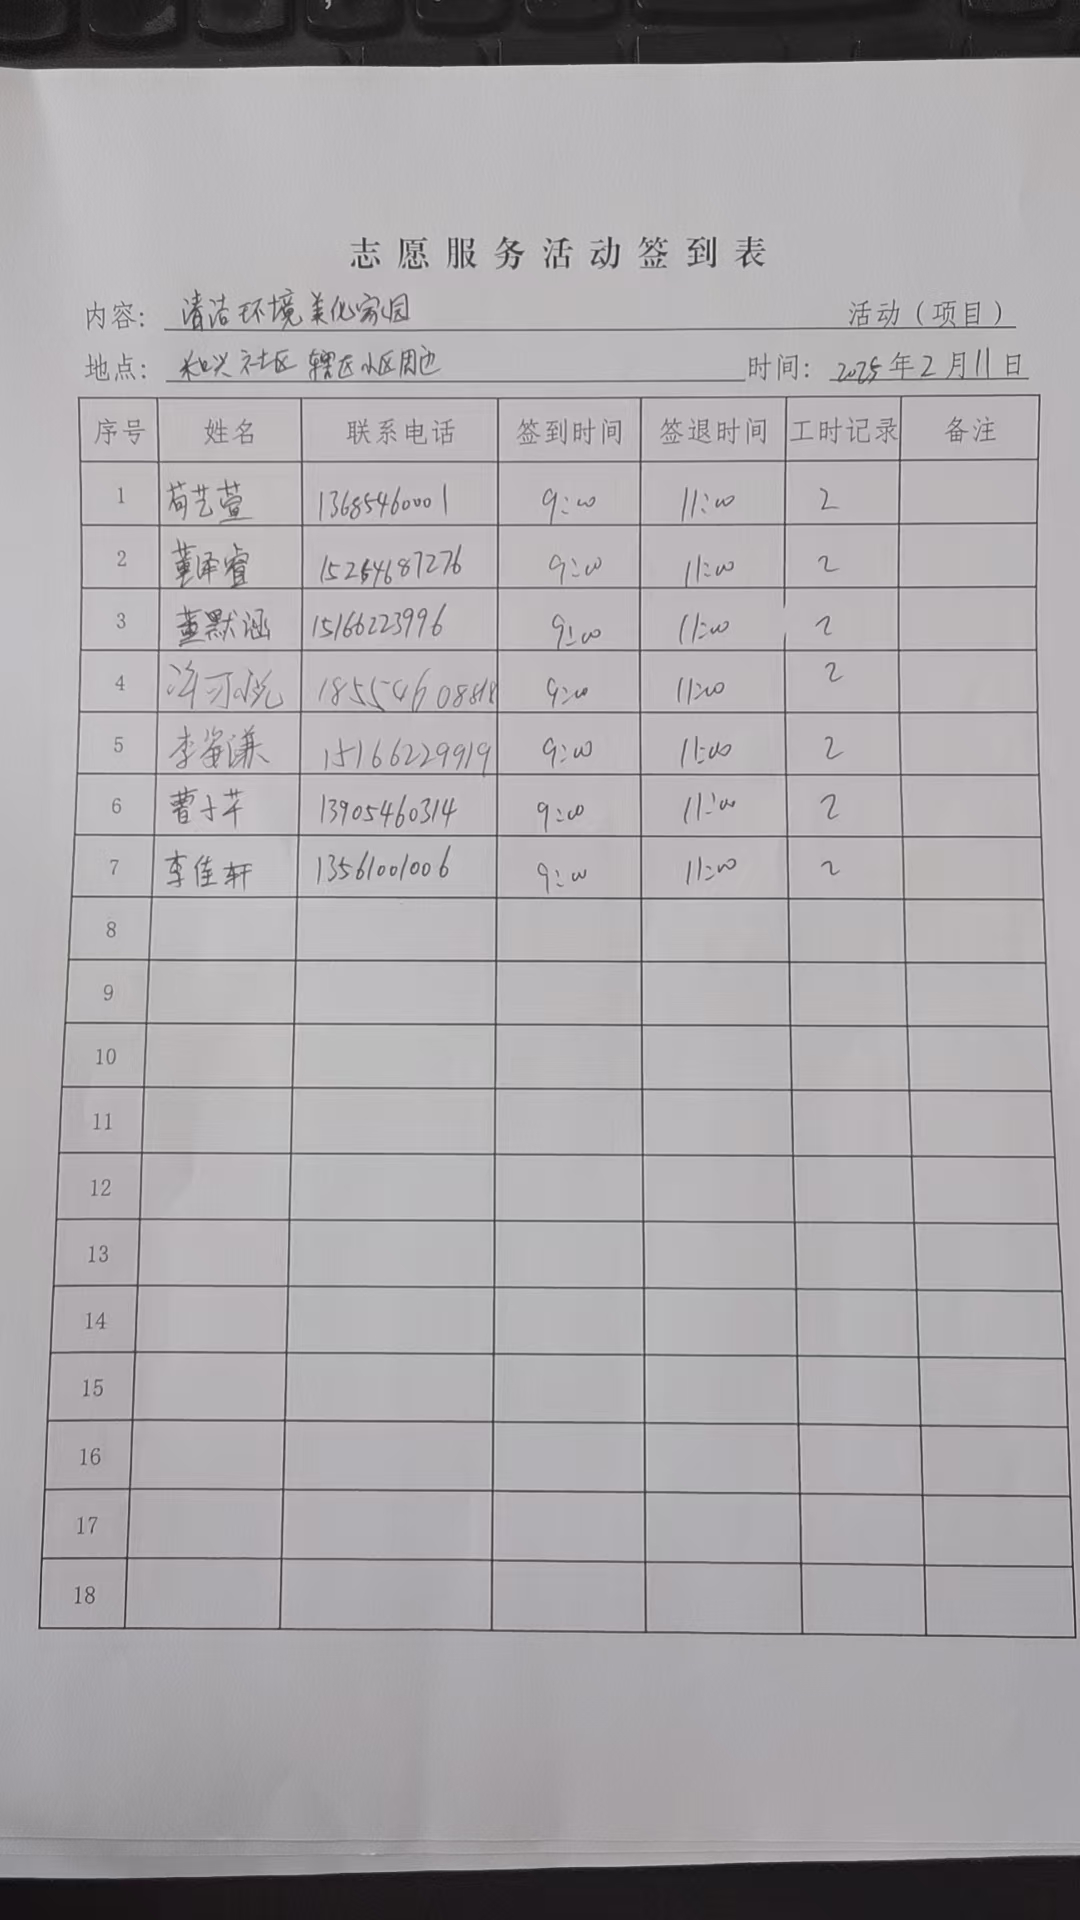 志愿服务活动签到表
内容: 清洁环境美化家园 活动（项目）
地点: 和兴社区辖区小区周边 时间: 2025年2月11日
序号 姓名 联系电话 签到时间 签退时间 工时记录 备注
1 荀艺萱 13685460001 9:00 11:00 2
2 董泽睿 15254687276 9:00 11:00 2
3 董默涵 15166223996 9:00 11:00 2
4 许可悦 18554608818 9:00 11:00 2
5 李 谦 15166229919 9:00 11:00 2
6 曹子芊 13905460314 9:00 11:00 2
7 李佳轩 13561001006 9:00 11:00 2
8
9
10
11
12
13
14
15
16
17
18